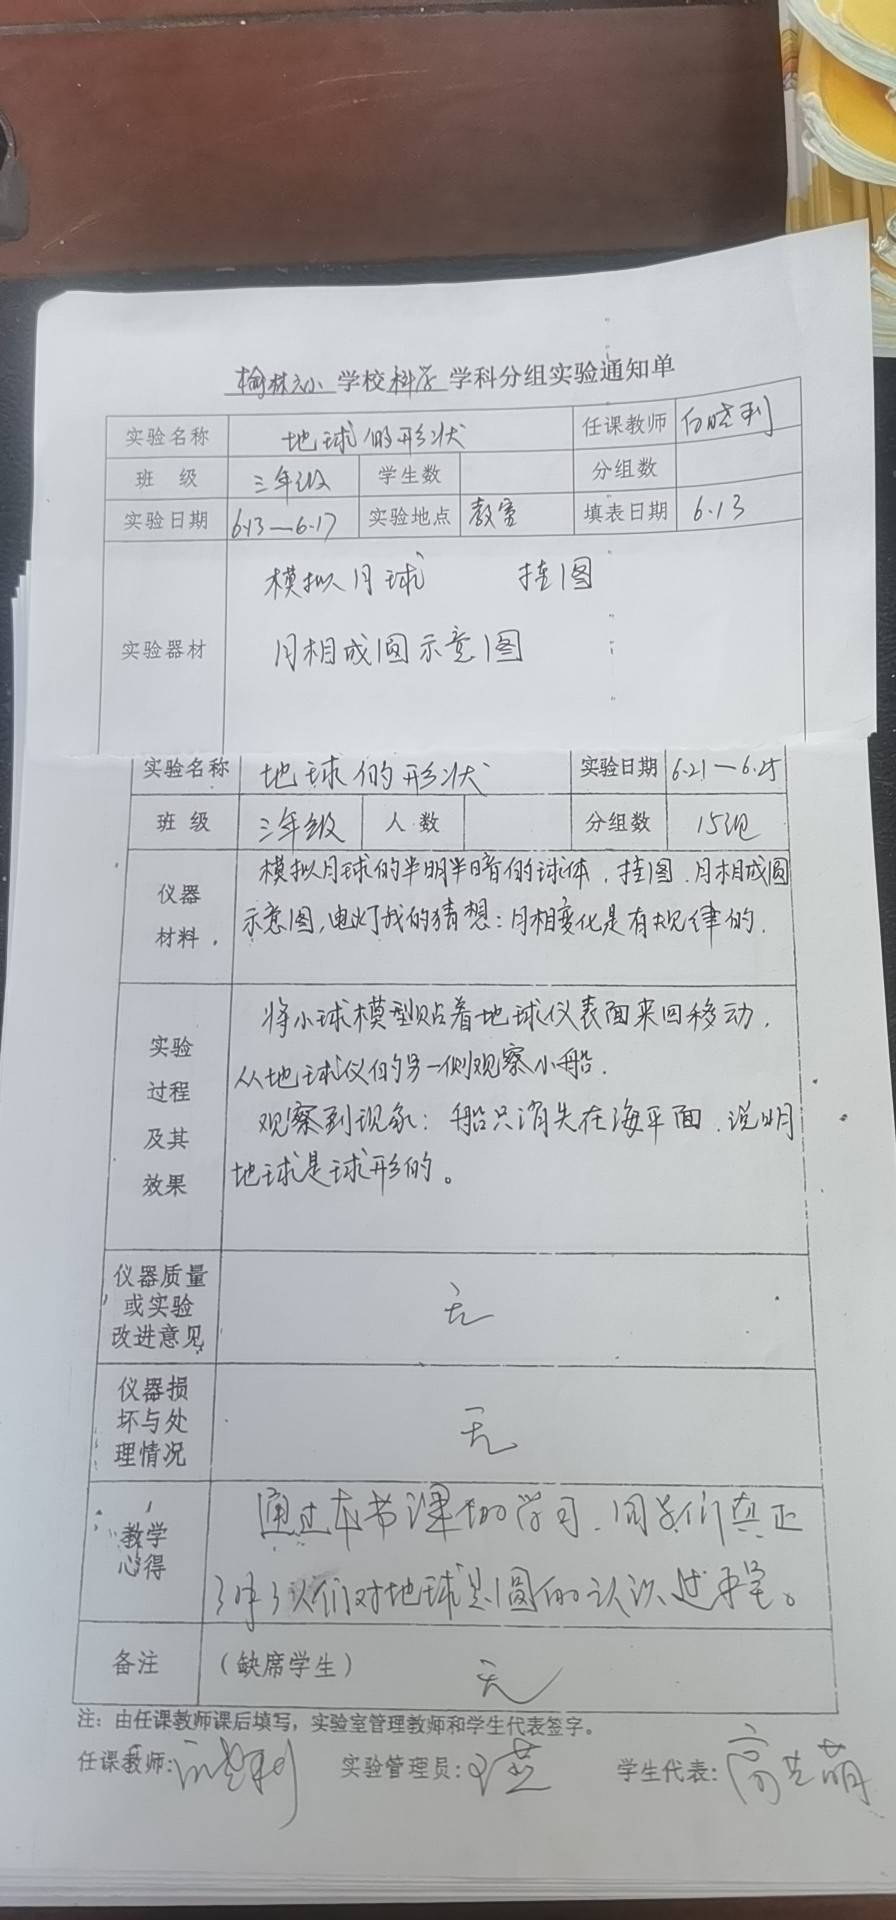 榆林六小 学校 科学 学科分组实验通知单
实验名称 地球的形状 任课教师
班 级 三年级 学生数 分组数
实验日期 6.13—6.17 实验地点 教室 填表日期 6.13
模拟月球 挂图
实验器材 月相成圆示意图
实验名称 地球的形状 实验日期 6.21—6.25
班 级 三年级 人 数 分组数 15组
仪器材料 模拟月球的半明半暗的球体、挂图、月相成圆
示意图,电灯我的猜想:月相变化是有规律的.
实验过程及其效果 将小球模型贴着地球仪表面来回移动,
从地球仪的另一侧观察小船.
观察到现象:船只消失在海平面、说明
地球是球形的。
仪器质量或实验改进意见 无
仪器损坏与处理情况 无
教学心得 通过本节课的学习、同学们真正
了解了人们对地球是圆的认识过程。
备注 (缺席学生) 无
注:由任课教师课后填写,实验室管理教师和学生代表签字。
任课教师: 实验管理员: 学生代表: